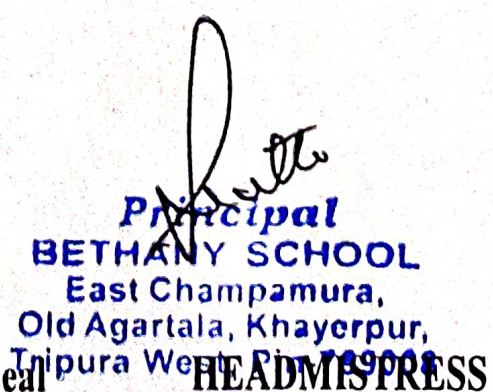 Principal
BETHANY SCHOOL
East Champamura,
Old Agartala, Khayerpur,
Tripura West, Pin
eal HEADMISTRESS